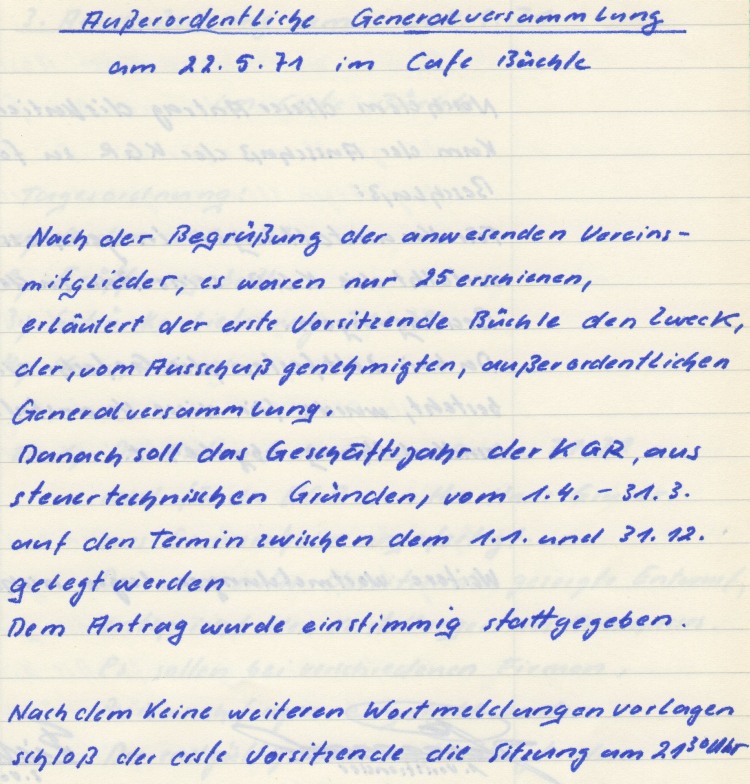 Außerordentliche Generalversammlung
am 22.5.71 im Cafe Büchle
Nach der Begrüßung der anwesenden Vereins-
mitglieder, es waren nur 25 erschienen,
erläutert der erste Vorsitzende Büchle den Zweck,
der, vom Ausschuß genehmigten, außerordentlichen
Generalversammlung.
Danach soll das Geschäftsjahr der KGR, aus
steuertechnischen Gründen, vom 1.4. - 31.3.
auf den Termin zwischen dem 1.1. und 31.12.
gelegt werden
Dem Antrag wurde einstimmig stattgegeben.
Nachdem Keine weiteren Wortmeldungen vorlagen
schloß der erste Vorsitzende die Sitzung um 21³⁰ Uhr